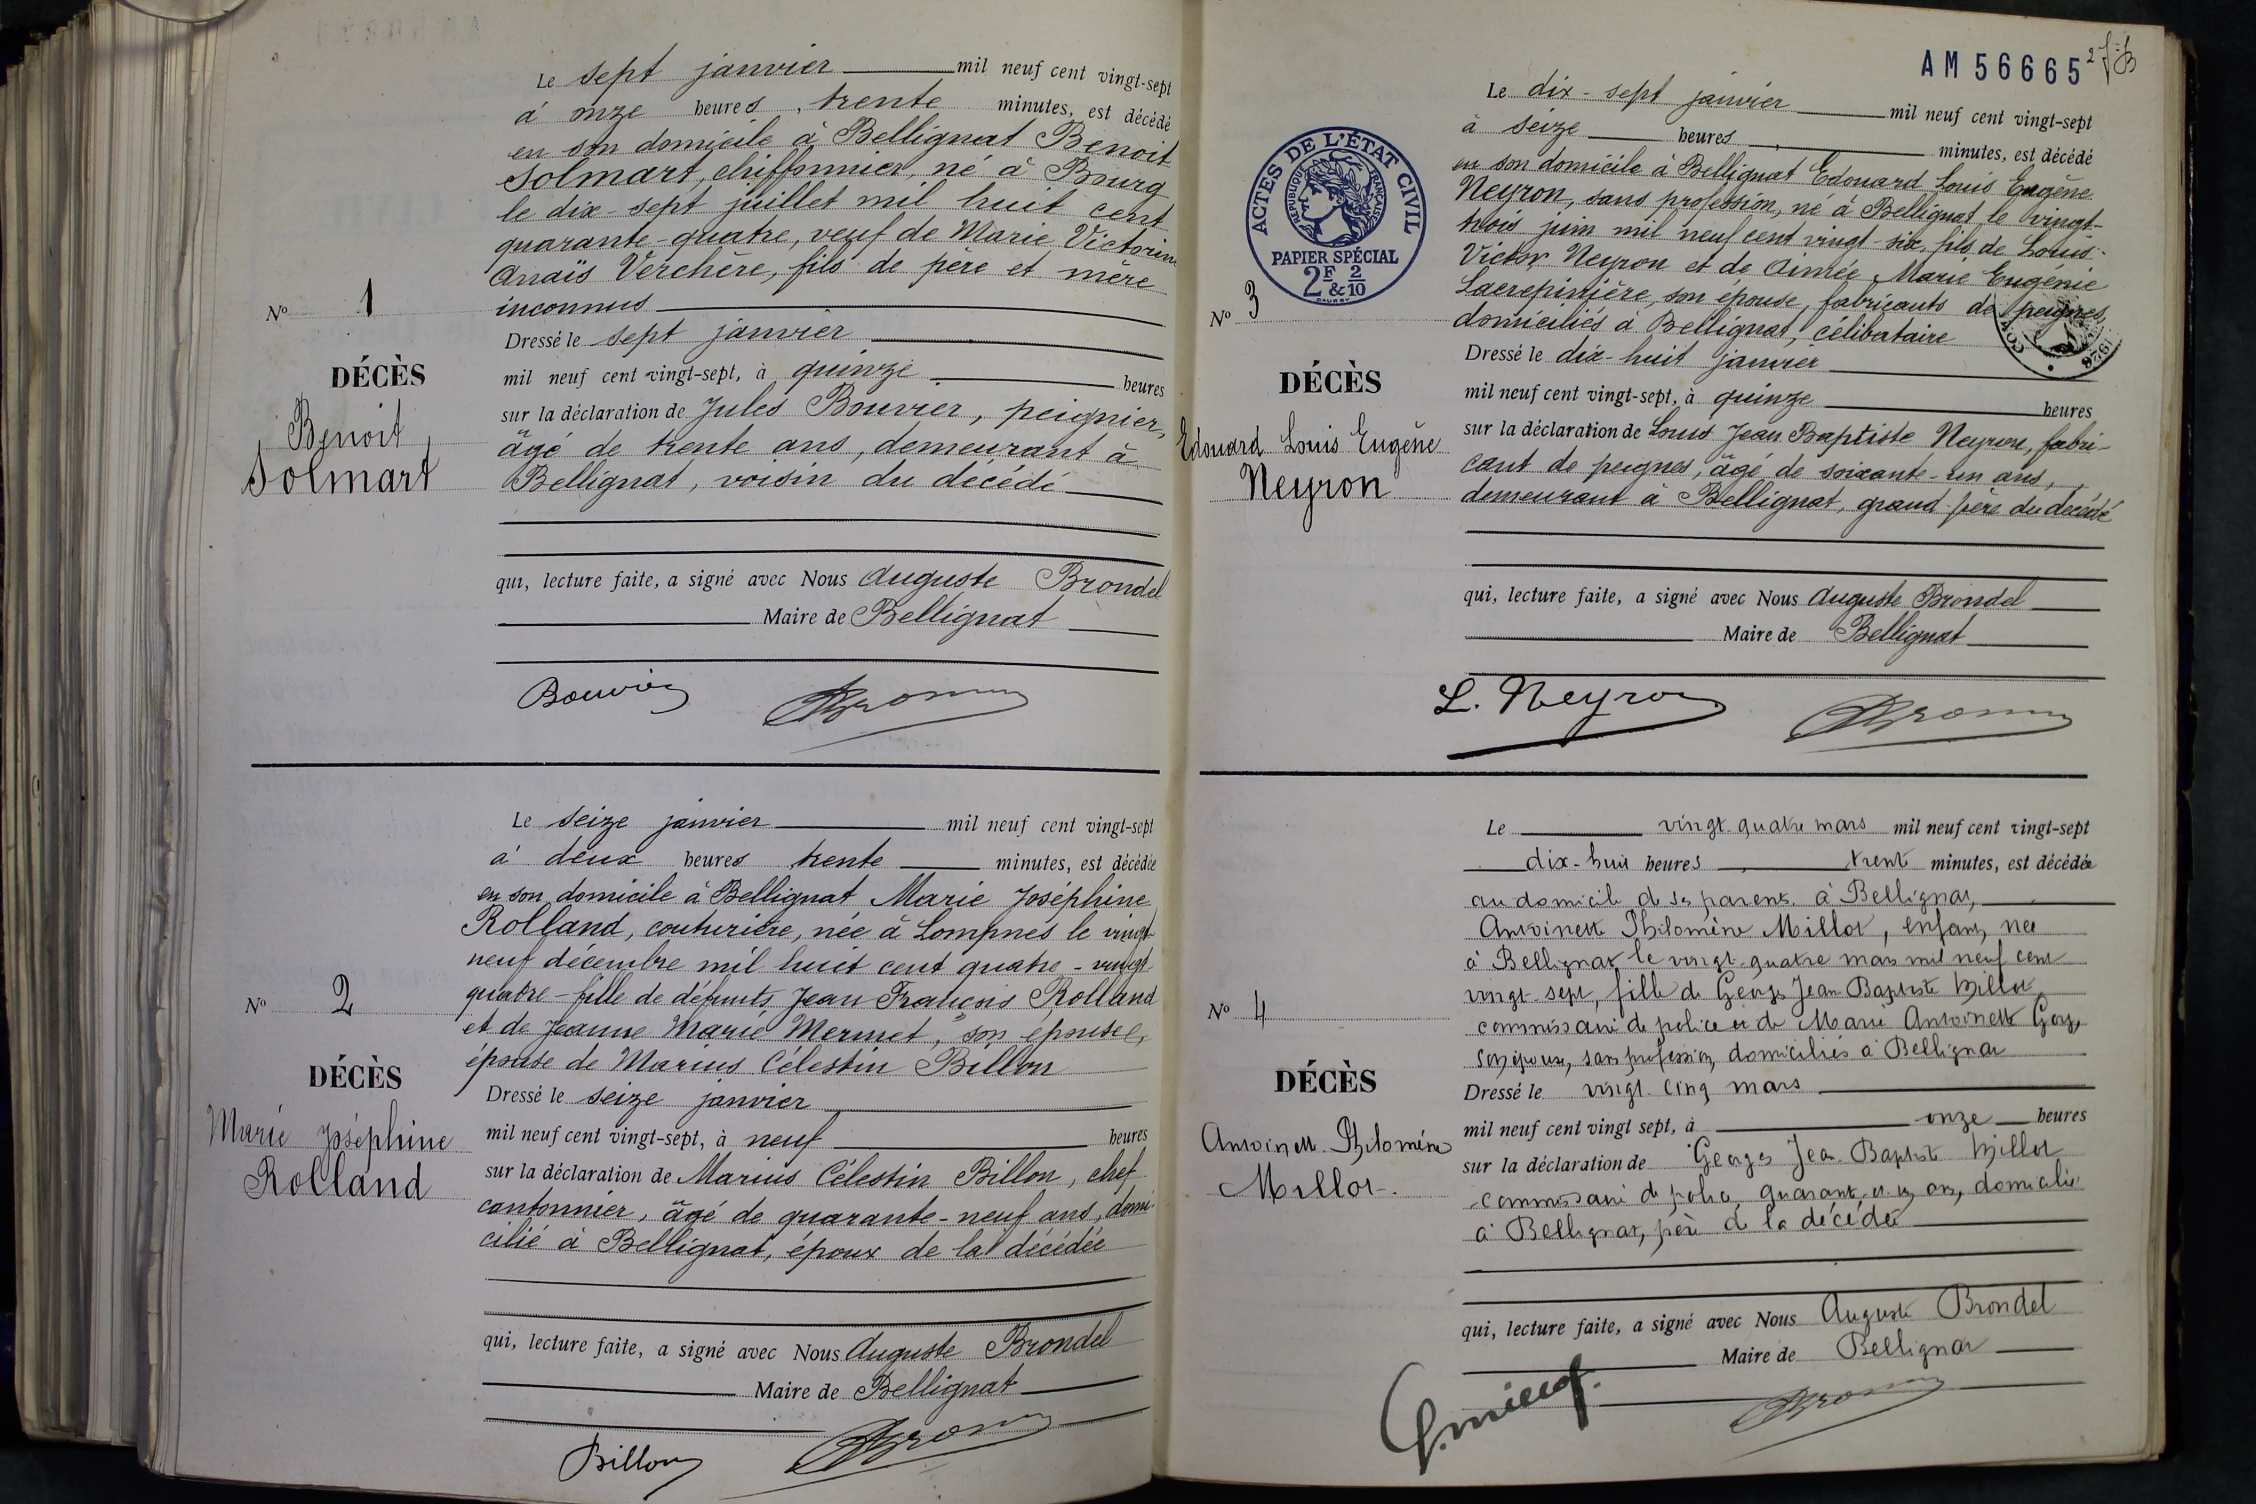 Le sept janvier mil neuf cent vingt-sept
à onze heures, trente minutes, est décédé
en son domicile à Bellignat Benoit
Solmart, chiffonnier, né à Bourg
le dix-sept juillet mil huit cent
quarante-quatre, veuf de Marie Victorine
Anaïs Verchère, fils de père et mère
inconnus
No 1
DÉCÈS
Benoit
Solmart
Dressé le sept janvier
mil neuf cent vingt-sept, à quinze heures
sur la déclaration de Jules Bouvier, peignier,
âgé de trente ans, demeurant à
Bellignat, voisin du décédé
qui, lecture faite, a signé avec Nous Auguste Brondel
Maire de Bellignat
Bouvier
Le seize janvier mil neuf cent vingt-sept
à deux heures trente minutes, est décédée
en son domicile à Bellignat Marie Joséphine
Rolland, couturière, née à Lompnes le vingt
neuf décembre mil huit cent quatre-vingt
quatre - fille de défunts Jean François Rolland
et de Jeanne Marie Mermet, son épouse,
épouse de Marius Célestin Billon
No 2
DÉCÈS
Marie Joséphine
Rolland
Dressé le seize janvier
mil neuf cent vingt-sept, à neuf heures
sur la déclaration de Marius Célestin Billon, chef
cantonnier, âgé de quarante-neuf ans, domi-
cilié à Bellignat, époux de la décédée
qui, lecture faite, a signé avec Nous Auguste Brondel
Maire de Bellignat
Billon
AM 56665
2
ACTES DE L'ÉTAT CIVIL
RÉPUBLIQUE FRANÇAISE
PAPIER SPÉCIAL
2F & 2/10
Le dix-sept janvier mil neuf cent vingt-sept
à seize heures, minutes, est décédé
en son domicile à Bellignat Edouard Louis Eugène
Neyron, sans profession, né à Bellignat le vingt-
trois juin mil neuf cent vingt-six, fils de Louis
Victor Neyron et de Aimée Marie Eugénie
Lacrepinière, son épouse, fabricants de peignes,
domiciliés à Bellignat, célibataire
1928
No 3
DÉCÈS
Edouard Louis Eugène
Neyron
Dressé le dix-huit janvier
mil neuf cent vingt-sept, à quinze heures
sur la déclaration de Louis Jean Baptiste Neyron, fabri-
cant de peignes, âgé de soixante-un ans,
demeurant à Bellignat, grand-père du décédé
qui, lecture faite, a signé avec Nous Auguste Brondel
Maire de Bellignat
L. Neyron
Le vingt quatre mars mil neuf cent vingt-sept
dix-huit heures, trente minutes, est décédée
au domicile de ses parents à Bellignat,
Antoinette Philomène Millot, enfant, née
à Bellignat le vingt-quatre mars mil neuf cent
vingt-sept, fille de Georges Jean Baptiste Millot
commissaire de police et de Marie Antoinette
son épouse, sans profession, domiciliés à Bellignat
No 4
DÉCÈS
Antoinette Philomène
Millot.
Dressé le vingt cinq mars
mil neuf cent vingt sept, à onze heures
sur la déclaration de Georges Jean Baptiste Millot
commissaire de police, quarante et un ans, domicilié
à Bellignat, père de la décédée
qui, lecture faite, a signé avec Nous Auguste Brondel
Maire de Bellignat
G. Millot.